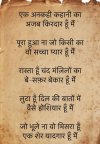 एक अनकही कहानी का
अजब किरदार हूँ मैं
पूरा हुआ ना जो किसी का
वो सच्चा प्यार हूँ मैं
रास्ता हूँ चंद मंज़िलों का
बे-सफ़र बेकार हूँ मैं
लुटा हूँ दिल की बातों में
हैसे होशियार हूँ मैं
जो भूले ना वो मिसरा हूँ
एक शेर यादगार हूँ मैं